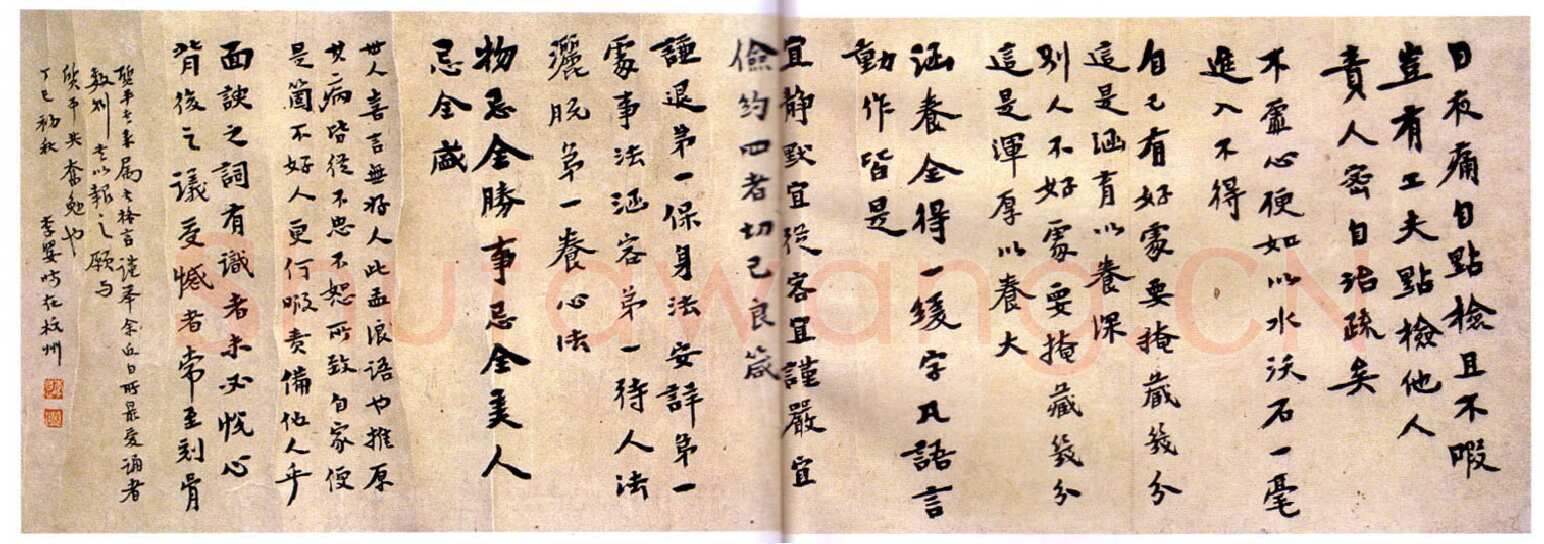 日夜痛自點檢且不暇
豈有工夫點檢他人
責人密自治疏矣
不虛心便如以水沃石一毫
進入不得
自己有好處要掩藏幾分
這是涵育以養深
別人不好處要掩藏幾分
這是渾厚以養大
涵養全得一緩字凡語言
動作皆是
宜靜默宜從容宜謹嚴宜
儉約四者切己良箴
謙退第一保身法安詳第一
處事法涵容第一待人法
灑脫第一養心法
物忌全勝事忌全美人
忌全盛
世人喜言無好人此孟浪語也推原
其病皆從不忠不恕所致自家便
是箇不好人更何暇責備他人乎
面諛之詞有識者未必悅心
背後之議受憾者常至刻骨
属書格言謹舉余近日所最愛誦者
數則書以報之願与
共奮勉也
丁巳初秋 李嬰時在杭州
Shufawang.CN